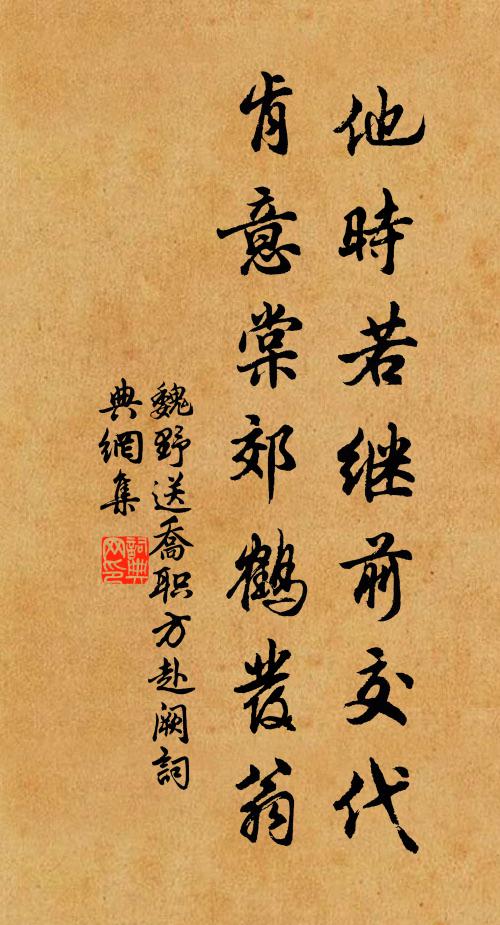 他時若继前交代
肯意棠郊鹤發翁
魏野送喬职方赴阙詞
典網集
詞典網印